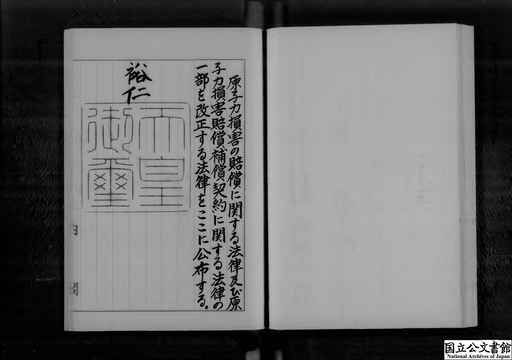 原子力損害の賠償に関する法律及び原
子力損害賠償補償契約に関する法律の
一部を改正する法律をここに公布する。
裕仁
天皇
御璽
国立公文書館
National Archives of Japan